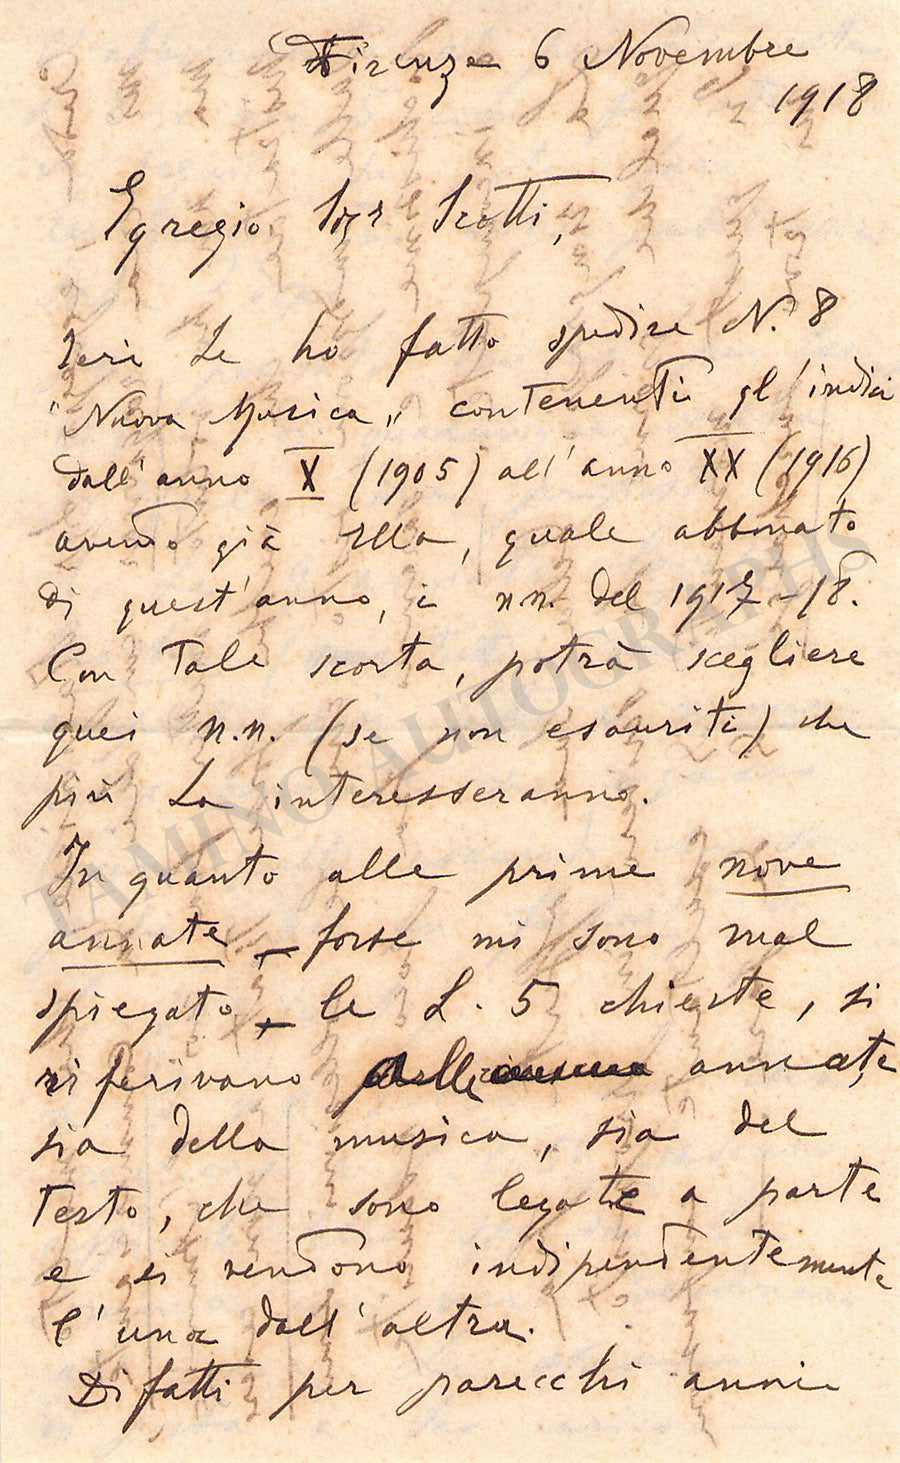 Firenze 6 Novembre
1918
Egregio Sigr Scotti,
Ieri Le ho fatto spedire N. 8
"Nuova Musica" contenenti gl'indici
dall'anno X (1905) all'anno XX (1916)
avendo già Ella, quale abbonato
di quest'anno, i n.n. del 1917-18.
Con tale scorta, potrà scegliere
quei n.n. (se non esauriti) che
più La interesseranno.
In quanto alle prime nove
annate - forse mi sono mal
spiegato - le L. 5 chieste, si
riferivano annate,
sia della musica, sia del
testo, che sono legate a parte
e si vendono indipendentemente
l'una dall'altra.
Difatti per parecchi anni
TAMINO AUTOGRAPHS